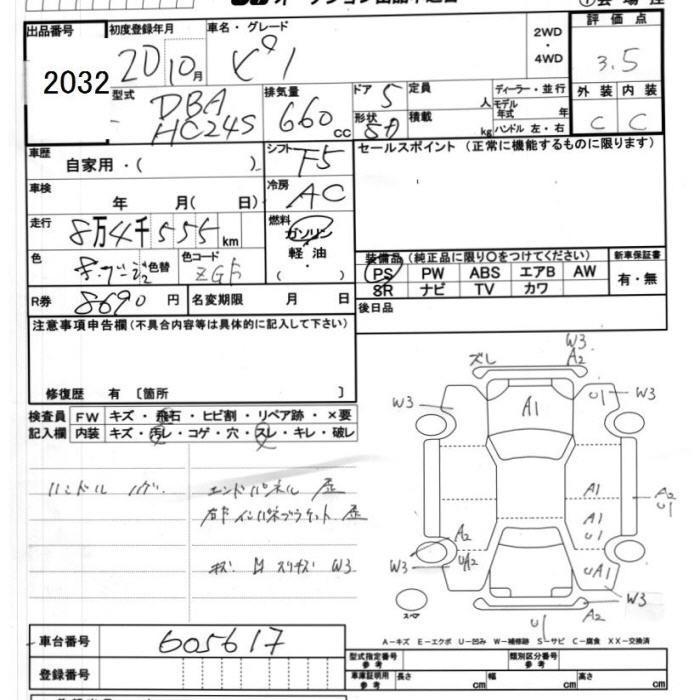 出品番号 2032
初度登録年月 20 10月
車名・グレード ピノ
2WD・4WD
評価点 3.5
型式 DBA HC24S
排気量 660 cc
ドア 5
形状 SD
定員 人
積載 kg
ディーラー・並行
モデル年式 年
ハンドル 左・右
外装 内装
C C
車歴 自家用・( )
シフト F5
セールスポイント (正常に機能するものに限ります)
車検 年 月( 日)
冷房 AC
走行 8万4千555km
燃料 ガソリン 軽油 ( )
色 色替
色コード
装備品 (純正品に限り○をつけてください)
新車保証書
PS PW ABS エアB AW
有・無
SR ナビ TV カワ
R券 8690 円
名変期限 月 日
後日品
注意事項申告欄(不具合内容等は具体的に記入して下さい)
修復歴 有 〔箇所 〕
検査員記入欄
FW キズ・飛石・ヒビ割・リペア跡・×要
内装 キズ・汚レ・コゲ・穴・スレ・キレ・破レ
ズレ
W3
A2
W3
A1
U1
W3
ハンドル
エンドパネル 歪
A1
A2
U1
右下インパネブラケット 歪
A1
U1
A2
UA2
W3
W3
UA1
W3
スペア
U1
A2
A−キズ E−エクボ U−凹み W−補修跡 S−サビ C−腐食 XX−交換済
車台番号 605617
型式指定番号 参考
類別区分番号 参考
登録番号
車庫証明用 参考
長さ cm
幅 cm
高さ cm